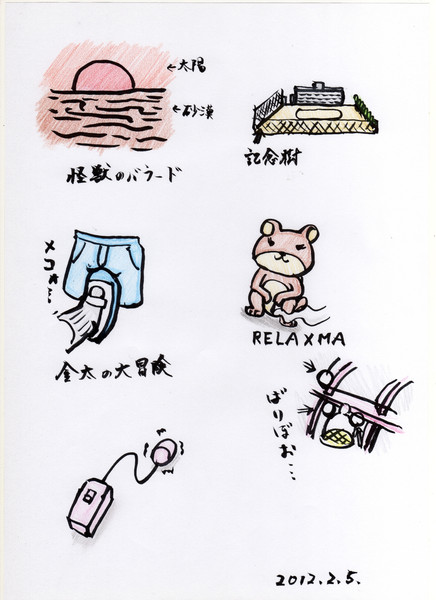 ←太陽
←砂漠
怪獣のバラード
記念樹
メコォ…
金太の大冒険
RELAXMA
ばりぼお…
2012.2.5.